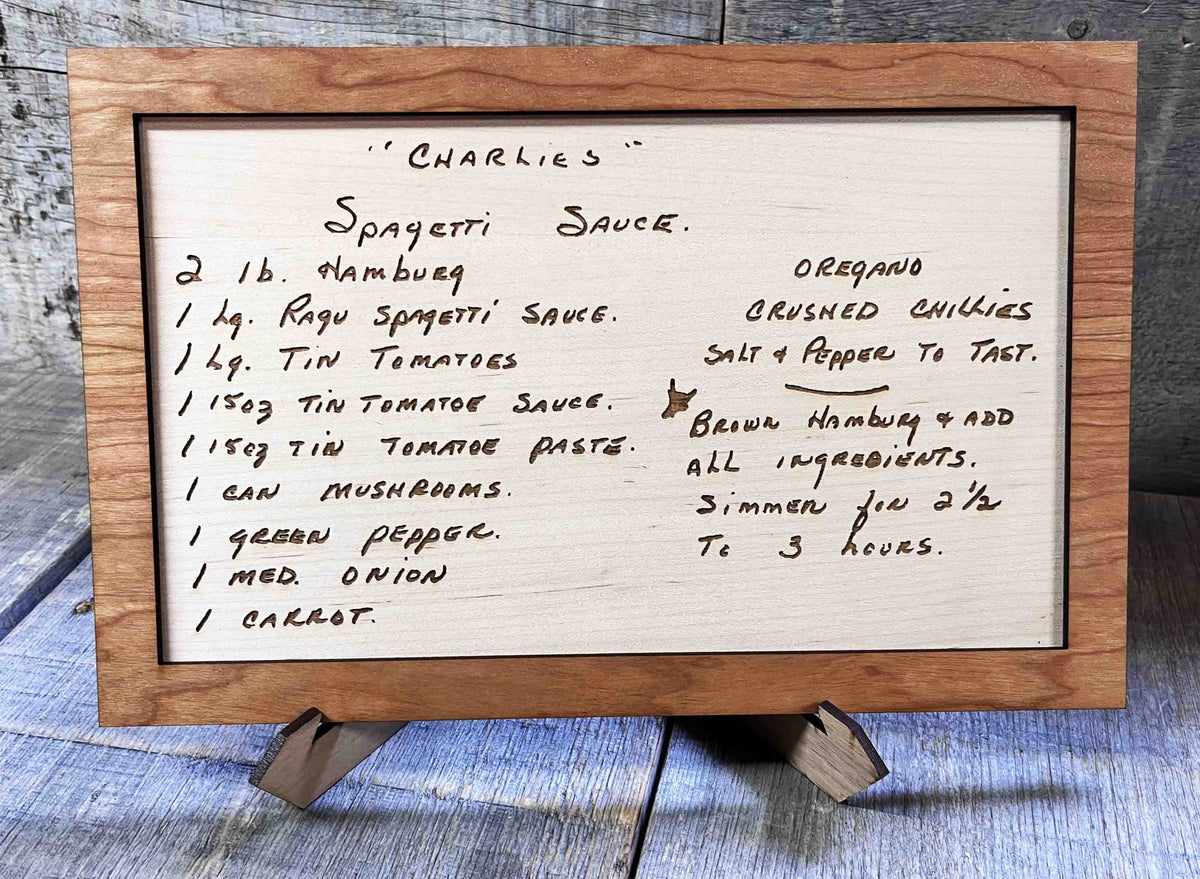 "CHARLiES"
SpAgETTi SAUCE.
2 lb. HAmburg
1 Lg. RAgu SpAgETTi SAUCE.
1 Lg. TiN TomATOES
1 15oz TiN TOMATOE SAUCE.
1 15oz TiN TOMATOE PASTE.
1 CAN MUSHROOMS.
1 GREEN PEPPER.
1 MED. ONiON
1 CARROT.
OREGANO
CRUSHED CHiLLiES
SALT & PEPPER TO TAST.
BROWN HAmburg & ADD
ALL iNGREDiENTS.
SiMMER foR 2 1/2
To 3 hOURS.